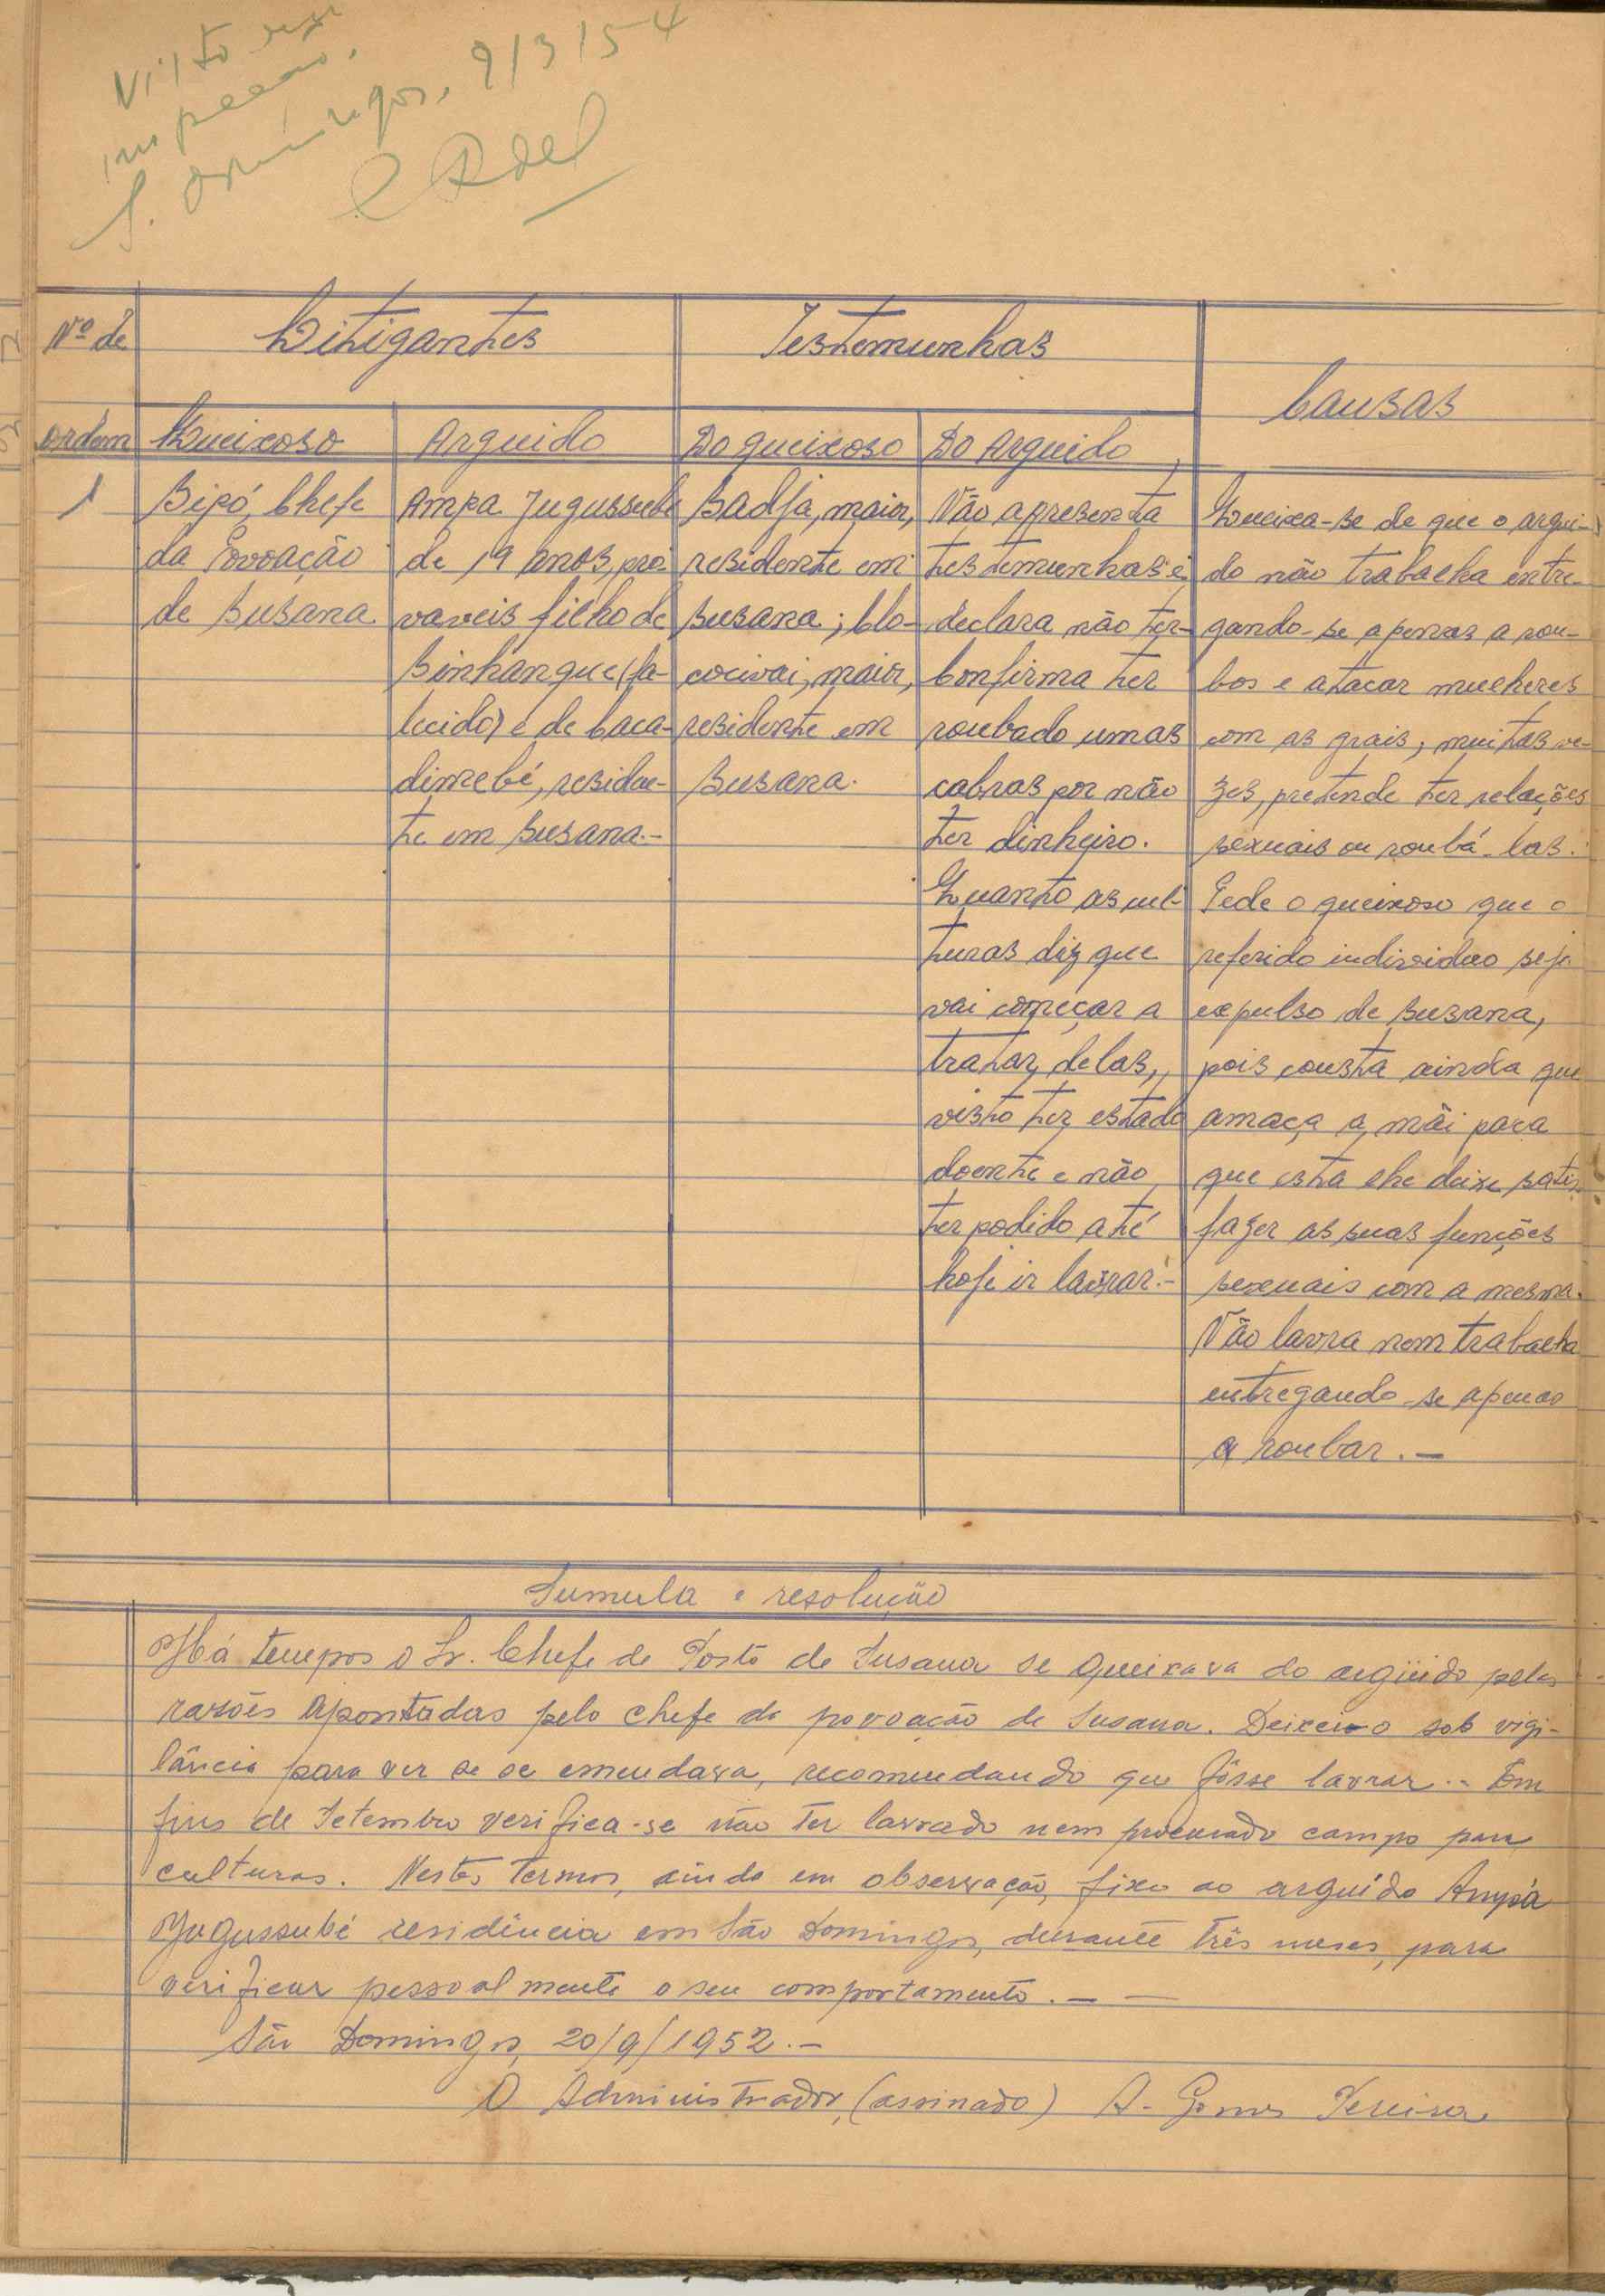 Visto em
inspeccão.
S. Domingos, 9/3/54
Nº de
ordem
Litigantes
Testemunhas
Causas
Queixoso
Arguido
Do queixoso
Do Arguido
1
Bipó, Chefe
da Povoação
de Susana.
Ampa Jugussubé
de 19 anos, pro-
vaveis filho de
Sinhangue (fa-
lecido) e de Caca-
dinebé, residen-
te em Susana.-
Badja, maior,
residente em
Susana; Clo-
cocivai, maior,
residente em
Susana.
Não apresenta
testemunhas e
declara não ter-
Confirma ter
roubado umas
cabras por não
ter dinheiro.
Quanto as cul-
turas diz que
vai começar a
tratar delas,
visto ter estado
doente e não
ter podido até
hoje ir lavrar.-
Queixa-se de que o argui-
do não trabalha entre-
gando-se apenas a rou-
bos e atacar mulheres
com as quais, muitas ve-
zes, pretende ter relações
sexuais ou roubá-las.
Pede o queixoso que o
referido individuo seja
expulso de Susana,
pois consta ainda que
amaça a mãi para
que esta lhe deixe satis-
fazer as suas funções
sexuais com a mesma.
Não lavra nem trabalha
entregando-se apenas
a roubar.-
Sumula e resolução
Há tempos o Sr. Chefe de Posto de Susana se queixava do argüido pelas
razões apontadas pelo chefe da povoação de Susana. Deixei-o sob vigi-
lância para ver se se emendava, recomendando que fôsse lavrar.- Em
fins de Setembro verifica-se não ter lavrado nem procurado campo para
culturas. Nestes termos, ainda em observação, fixo ao arguido Ampá
Jugussubé residência em São Domingos, durante três meses, para
verificar pessoalmente o seu comportamento.- —
São Domingos, 20/9/1952.-
O Administrador, (assinado) A. Gomes Pereira